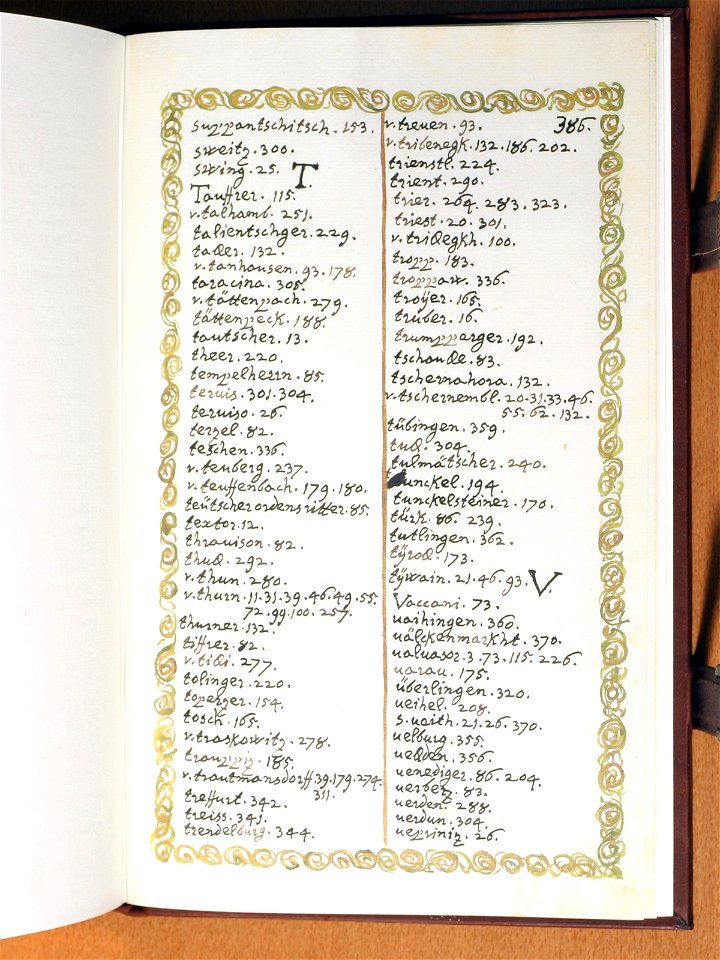 suppantschitsch . 153.
sweitz . 300.
swing . 25.
T.
Tauffrer . 115.
v. talhamb . 251.
talientschger . 229.
tader . 132.
v. tanhausen . 93 . 178.
taracina . 305.
v. tättenpach . 279.
tättenpeck . 188.
tautscher . 13.
theer . 220.
tempelherrn . 85.
teruis . 301 . 304.
teruiso . 26.
terzel . 82.
teschen . 336.
v. teuberg . 237.
v. teuffenbach . 179 . 180.
teütscher ordens ritter . 85.
textor . 12.
thrauison . 82.
thud . 292.
v. thun . 280.
v. thurn . 11 . 31 . 39 . 46 . 49 . 55.
72 . 99 . 100 . 257.
thurner . 132.
tiffrer . 82.
v. tidi . 277.
tolinger . 220.
toperzer . 154.
tosch . 165.
v. traskowitz . 278.
traupp . 185.
v. trautmansdorff . 39 . 179 . 274.
311.
treffurt . 342.
treiss . 341.
trendelburg . 344.
386.
v. treuen . 93.
v. tribenegk . 132 . 186 . 202.
trienstl . 224.
trient . 290.
trier . 264 . 283 . 323.
triest . 20 . 301.
v. tridegkh . 100.
tropp . 183.
troppaw . 336.
troÿer . 165.
trüber . 16.
trumpparger . 192.
tschaude . 83.
tschernahora . 132.
v. tschernembl . 20 . 31 . 33 . 46.
55 . 62 . 132.
tübingen . 359.
tud . 304.
tulmätscher . 240.
tunckel . 194.
tunckelsteiner . 170.
türk . 86 . 239.
tutlingen . 362.
tÿrod . 173.
tÿwain . 21 . 46 . 93.
V.
Vaccani . 73.
uaihingen . 360.
uälckenmarkht . 370.
ualuasor . 3 . 73 . 115 . 226.
uarau . 175.
überlingen . 320.
ueihel . 208.
s. uaith . 21 . 26 . 370.
uelburg . 355.
uelden . 356.
uenediger . 86 . 204.
uerbez . 83.
uerden . 288.
uerdun . 304.
uepriniz . 26.